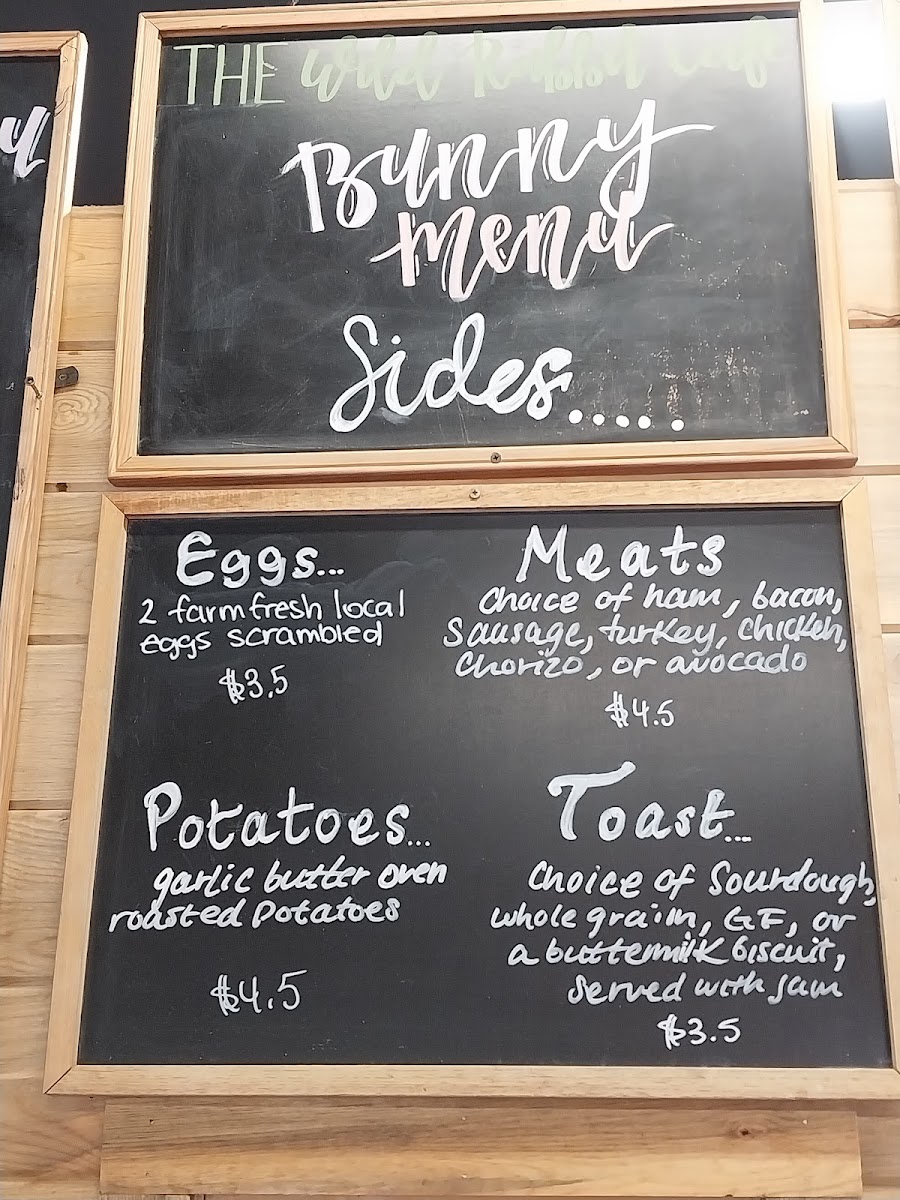 THE Wild Rabbit Cafe
Bunny
menu
Sides.....
Eggs...
2 farm fresh local
eggs scrambled
$3.5
Meats
Choice of ham, bacon,
Sausage, turkey, chicken,
Chorizo, or avocado
$4.5
Potatoes...
garlic butter oven
roasted potatoes
$4.5
Toast...
Choice of Sourdough,
whole grain, GF, or
a buttermilk biscuit,
Served with jam
$3.5